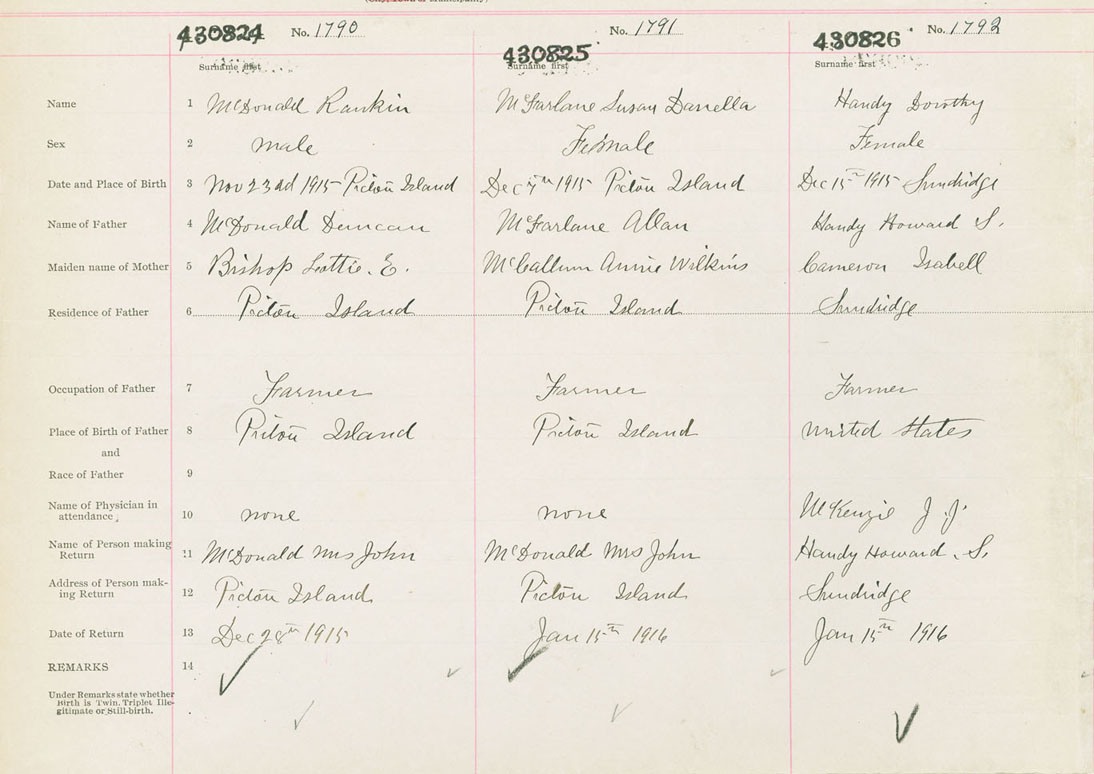 430824 No. 1790 430825 No. 1791 430826 No. 1792
Surname first Surname first Surname first
Name 1 McDonald Rankin McFarlane Susan Danella Handy Dorothy
Sex 2 male Female Female
Date and Place of Birth 3 Nov 23rd 1915 Picton Island Dec 7th 1915 Picton Island Dec 15th 1915 Sundridge
Name of Father 4 McDonald Duncan McFarlane Allan Handy Howard S.
Maiden name of Mother 5 Bishop Lottie. E. McCallum Annie Wilkins Cameron Isabell
Residence of Father 6 Picton Island Picton Island Sundridge
Occupation of Father 7 Farmer Farmer Farmer
Place of Birth of Father 8 Picton Island Picton Island United States
and
Race of Father 9
Name of Physician in
attendance. 10 none none McKenzie J. J.
Name of Person making
Return 11 McDonald Mrs John McDonald Mrs John Handy Howard. S.
Address of Person mak-
ing Return 12 Picton Island Picton Island Sundridge
Date of Return 13 Dec 28th 1915 Jan 15th 1916 Jan 15th 1916
REMARKS 14
Under Remarks state whether
Birth is Twin. Triplet Ille-
gitimate or Still-birth.